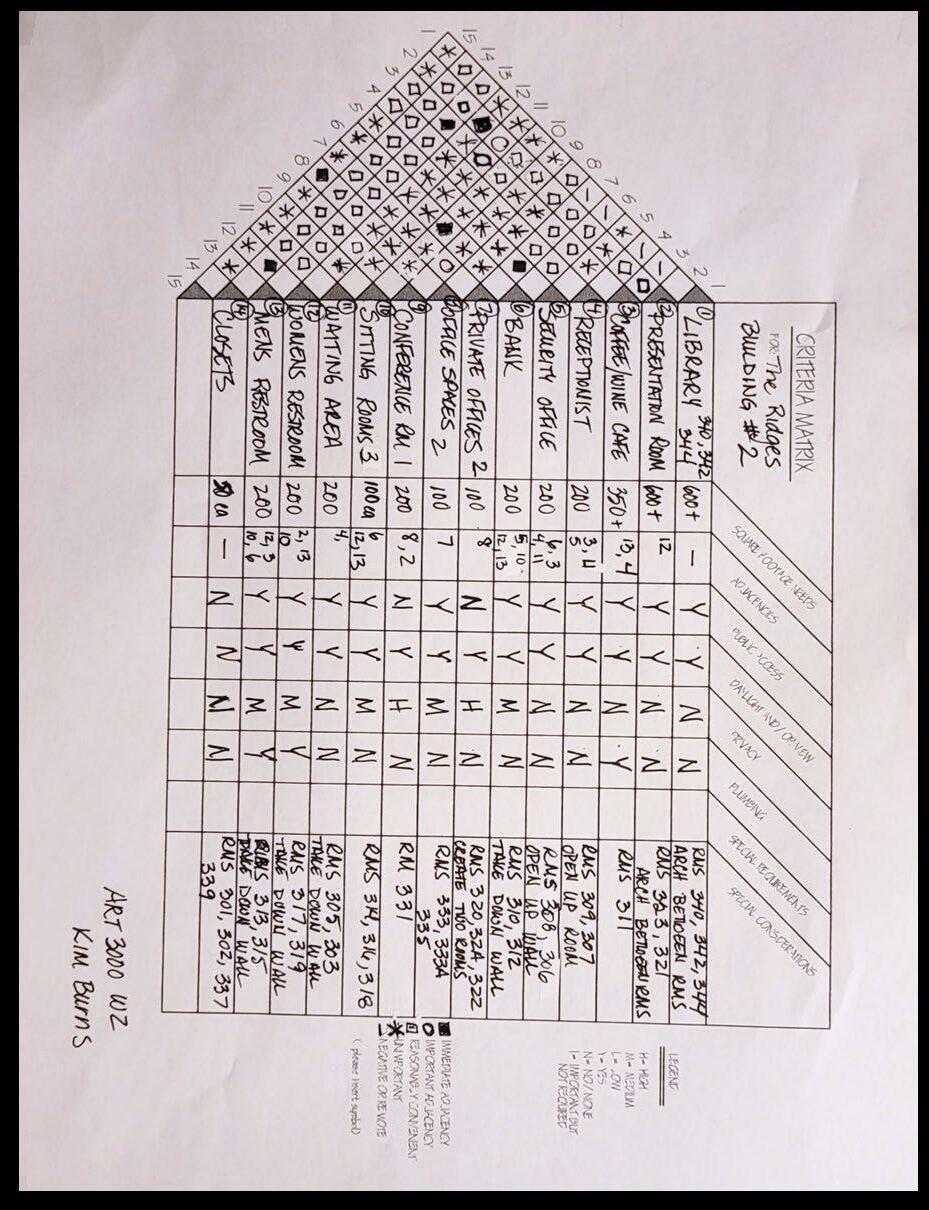 CRITERIA MATRIX
FOR: The Ridges
BUILDING #2
SQUARE FOOTAGE NEEDS
ADJACENCIES
PUBLIC ACCESS
DAYLIGHT AND/OR VIEW
PRIVACY
PLUMBING
SPECIAL REQUIREMENTS
SPECIAL CONSIDERATIONS
1 LIBRARY 340, 342 344 600+ — Y Y N N RMS 340, 342, 344 ARCH BETWEEN RMS
2 PRESENTATION ROOM 600+ 12 Y Y N N RMS 323, 321 ARCH BETWEEN RMS
3 COFFEE/WINE CAFE 350+ 13, 4 Y Y N Y RMS 311
4 RECEPTIONIST 200 3, 11 5 Y Y N N RMS 309, 307 OPEN UP ROOM
5 SECURITY OFFICE 200 6, 3 4, 11 Y Y N N RMS 308, 306 OPEN UP WALL
6 BANK 200 5, 10 12, 13 Y Y M N RMS 310, 312 TAKE DOWN WALL
7 PRIVATE OFFICES 2 100 8 N Y H N RMS 320, 324, 322 CREATE TWO ROOMS
OFFICE SPACES 2 100 7 Y Y M N RMS 333, 333A 335
9 CONFERENCE RM 1 200 8, 2 N Y H N RM 331
10 SITTING ROOMS 3 100 ea 6 12, 13 Y Y M N RMS 314, 316, 318
11 WAITING AREA 200 4, Y Y N N RMS 305, 303 TAKE DOWN WALL
12 WOMENS RESTROOM 200 2, 13 10 Y Y M Y RMS 317, 319 TAKE DOWN WALL
13 MENS RESTROOM 200 12, 3 10, 6 Y Y M Y RMS 313, 315 TAKE DOWN WALL
14 CLOSETS ea — N N N N RMS 301, 302, 337 339
1 2 3 4 5 6 7 8 9 10 11 12 13 14 15
1 2 3 4 5 6 7 8 9 10 11 12 13 14 15
LEGEND
H= HIGH
M= MEDIUM
L= LOW
Y= YES
N= NO/NONE
I= IMPORTANT BUT
NOT REQUIRED
IMMEDIATE ADJACENCY
IMPORTANT ADJACENCY
REASONABLY CONVENIENT
UNIMPORTANT
NEGATIVE OR REMOTE
( please insert symbol)
ART 3000 WZ
KIM BURNS